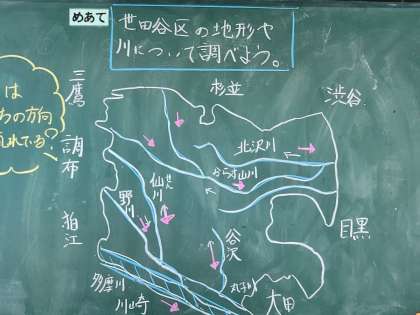 めあて
世田谷区の地形や
川について調べよう。
は
の方向
れている?
三鷹
杉並
渋谷
調布
北沢川
からす山川
仙川
野川
狛江
目黒
谷沢
多摩川
川崎
丸子
大田